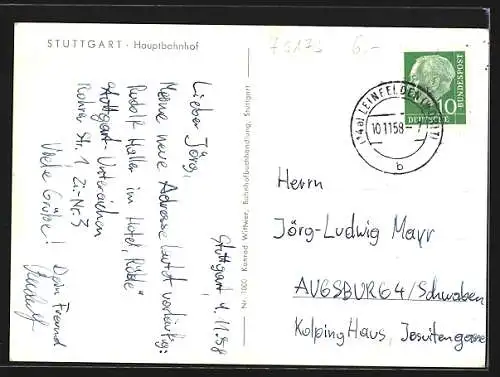 STUTTGART · Hauptbahnhof
75173 6.-
Stuttgart, 9.11.58
Lieber Jörg,
Meine neue Adresse lautet vorläufig:
Rudolf Haller im Hotel „Rössle"
Stuttgart-Unteraichen
Rohrer Str. 1 Zi-Nr. 3
Viele Grüße!
Dein Freund
Rudolf
Nr. 1000 Konrad Wittwer, Bahnhofbuchhandlung, Stuttgart
(14a) LEINFELDEN
10.1158
b
10
DEUTSCHE
BUNDESPOST
Herrn
Jörg-Ludwig Mayr
AUGSBURG 4/Schwaben
Kolping Haus, Jesuitengasse